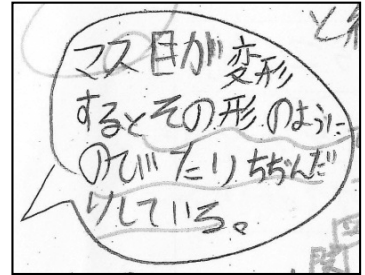 マス目が変形
するとその形のように
のびたりちぢんだ
りしている。